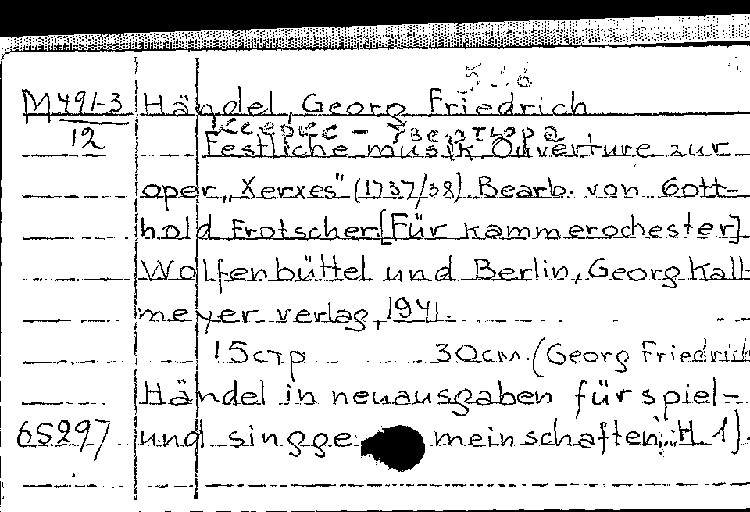 M491-3 Händel, Georg Friedrich
Ксеркс - Увертюра
12 Festliche musik Ouverture zur
oper „Xerxes" (1737/38). Bearb. von Gott-
hold Frotscher [Für kammerochester]
Wolfenbüttel und Berlin, Georg Kall-
meyer verlag, 1941.
15 стр 30 см. (Georg Friedrich
Händel in neuausgaben für spiel-
65297 und singge meinschaften, H. 1).